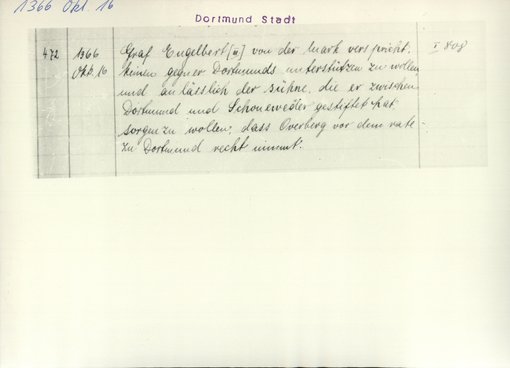 1366 Okt. 16
Dortmund Stadt
472 1366 Graf Engelbert [III] von der Mark verspricht, I 808
Okt. 16 keinen gegner Dortmunds unterstützen zu wollen
und anlässlich der sühne, die er zwischen
Dortmund und Schoneweder gestiftet hat
sorgen zu wollen, dass Overberg vor dem rate
zu Dortmund recht nimmt.